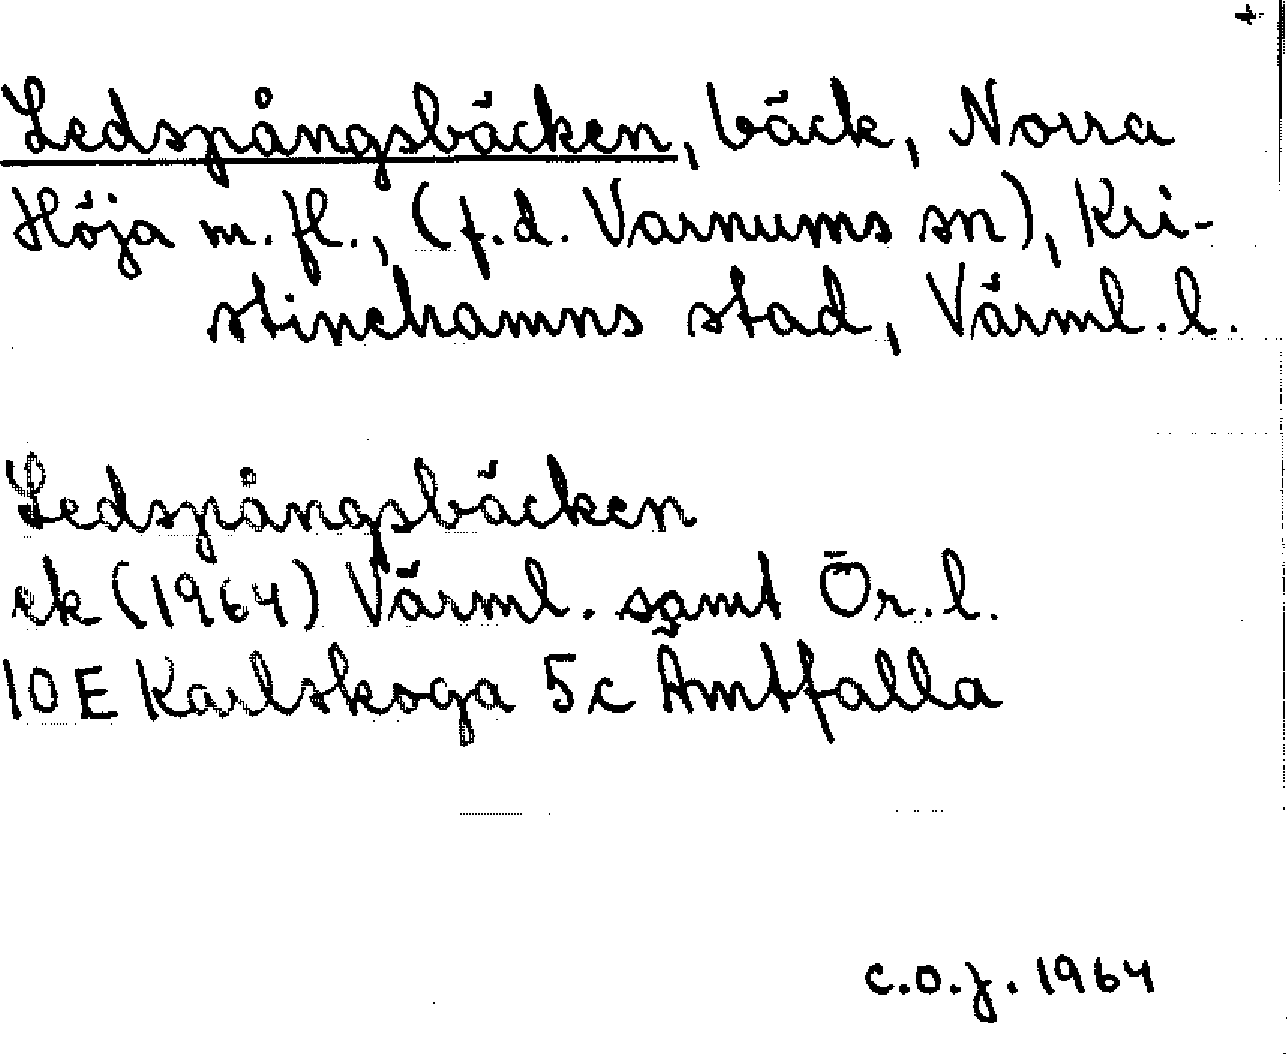 +
Ledspångsbäcken, bäck, Norra
Höja m. fl., (f.d. Varnums sn), Kri-
stinehamns stad, Värml. l.
Ledspångsbäcken
ek (1964) Värml. samt Ör. l.
10E Karlskoga 5c Ämtfalla
C.O.J. 1964